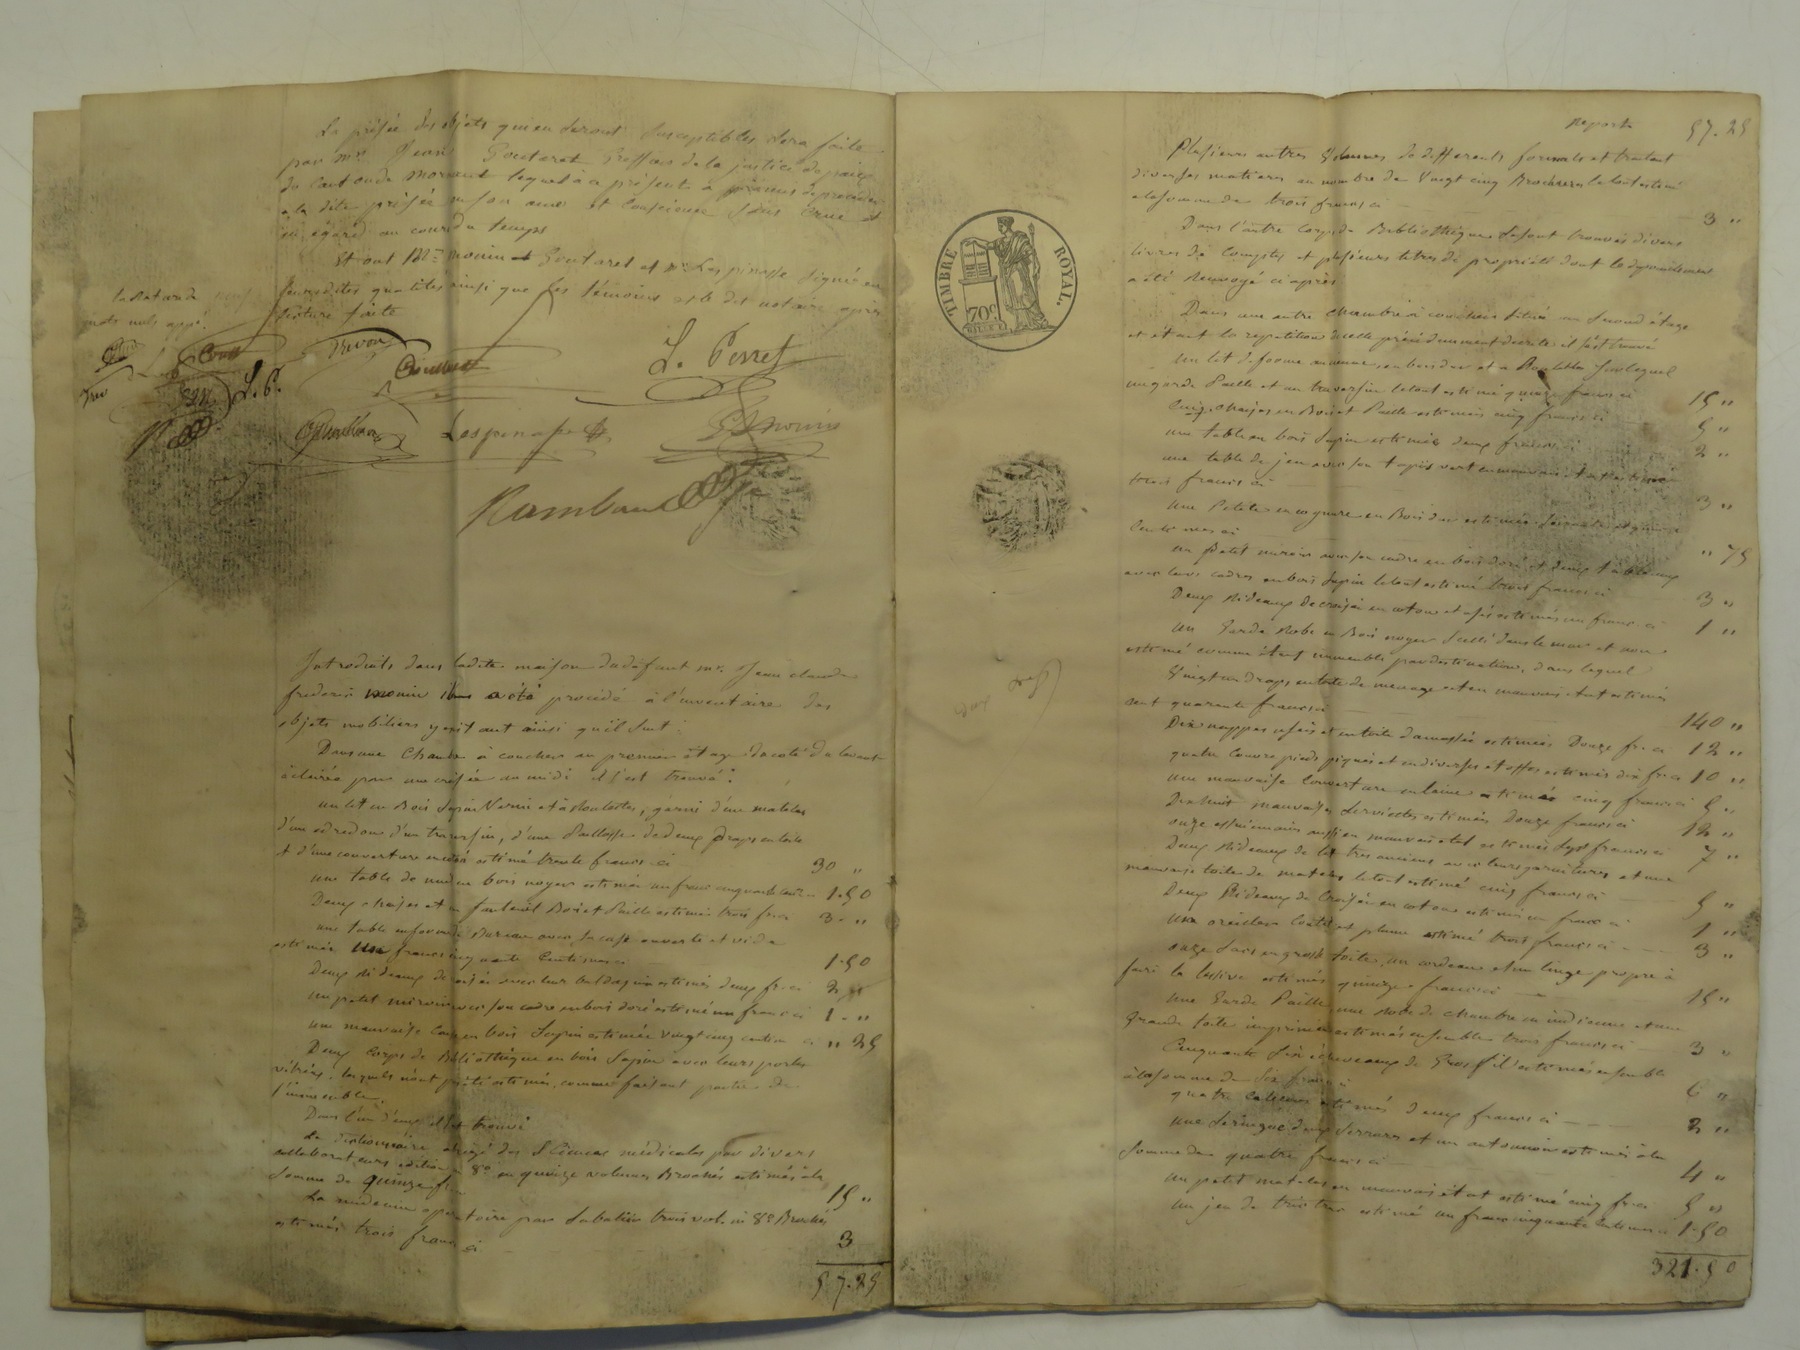 La prisée des objets qui en seront susceptibles sera faite
par Mr. Jean Goutaret Greffier de la justice de paix
du Canton de Mornant lequel à ce présent a promis de procéder
à la dite prisée en son ame et Conscience sans crue et
eu égard au cours du temps
Et ont Mrs. monin et Goutaret et Mr. Lespinasse signé en
susdites qualités ainsi que les témoins et le dit notaire après
lecture faite
la rature de
mots nuls app.
L. P.
Trevon
L. Perret
Lespinasse
Monin
Rambaud
Introduits dans ladite maison du défunt Mr. Jean claude
frederic monin il a été procédé à l'inventaire des
objets mobiliers y existant ainsi qu'il suit :
Dans une Chambre à coucher au premier étage du coté du levant
éclairée par une croisée au midi il s'est trouvé :
un lit en Bois Sapin Verni et à Roulettes, garni d'un matelas
d'un edredon d'un traversin, d'une Paillasse de deux draps en toile
et d'une couverture estimé trente francs ci 30 "
une table de nuit en bois noyer estimée un franc cinquante cent. 1.50
Deux chaises et un fauteuil Bois et Paille estimés trois fr. ci 3 - "
une table en forme de Bureau avec sa case ouverte et vide
estimée un franc cinquante Centimes ci 1.50
Deux Rideaux de croisée avec leur baldaquin estimés deux fr. ci 2 "
un petit miroir avec son cadre en bois doré estimé un franc ci 1 - "
une mauvaise en bois Sapin estimée vingt cinq centim. ci " 25
Deux Corps de Bibliothèque en bois Sapin avec leurs portes
vitrées, lesquels n'ont pas été estimés, comme faisant partie de
l'immeuble.
Dans l'un d'eux il s'est trouvé
Le dictionnaire abrégé des Sciences médicales par divers
collaborateurs édition in 8º en quinze volumes Brochés estimés à la
somme de quinze fr. 15 "
La médecine opératoire par Sabatier trois vol. in 8º Brochés
estimés trois francs ci 3
57.25
Report 57.25
Plusieurs autres Volumes de differents formats et traitant
diverses matieres au nombre de Vingt cinq Brochures le tout estimé
à la somme de trois francs ci 3 "
Dans l'autre Corps de Bibliothèque se sont trouvés divers
livres de Comptes et plusieurs titres de propriété dont le dépouillement
a été Renvoyé ci après
Dans une autre chambre à coucher située au Second étage
et étant la repetition de celle précédemment décrite il s'est trouvé
un lit de forme ancienne, en bois dur et à Roulettes sur lequel
un garde Paille et un traversin le tout estimé quinze francs ci 15 "
Cinq chaises en Bois et Paille estimées cinq francs ci 5 "
une table en bois Sapin estimée deux francs ci 2 "
une table de jeu avec son tapis vert en mauvais état estimée
trois francs ci 3 "
une Petite encognure en Bois dur estimée Soixante et quinze
Centimes ci " 75
un Petit miroir avec son cadre en bois doré et deux tableaux
avec leurs cadres en bois Sapin le tout estimé trois francs ci 3 "
Deux Rideaux de croisée en coton et usés estimés un franc ci 1 "
un Garde Robe en Bois noyer scellé dans le mur et non
estimé comme étant immeuble par destination, dans lequel
Vingt draps en toile de menage et en mauvais état estimés
cent quarante francs ci 140 "
Dix nappes usées et en toile damassée estimées Douze fr. ci 12 "
quatre Couvre pieds piqués et en diverses étoffes estimés dix fr. ci 10 "
une mauvaise Couverture en laine estimée cinq francs ci 5 "
Dix huit mauvaises serviettes estimées Douze francs ci 12 "
onze essuiemains aussi en mauvais état estimés sept francs ci 7 "
Deux Rideaux de lit tres anciens avec leurs garnitures et une
mauvaise toile de matelas le tout estimé cinq francs ci 5 "
Deux Rideaux de Croisée en coton estimés un franc ci 1 "
un oreiller Coutil et plume estimé trois francs ci 3 "
onze sacs en grosse toile, un cordeau et un linge propre à
faire la lessive estimés quinze francs ci 15 "
une Garde Paille une Robe de chambre en indienne et une
grande toile imprimée estimés ensemble trois francs ci 3 "
Cinquante Six écheveaux de Gros fil estimés ensemble
à la somme de Six francs 6 "
quatre estimés deux francs ci 2 "
une Seringue deux Serrures et un entonnoir estimés à la
Somme de quatre francs ci 4 "
un petit matelas en mauvais état estimé cinq fr. ci 5 "
un jeu de trictrac estimé un franc cinquante centimes ci 1.50
321.50
TIMBRE ROYAL.
70 c.